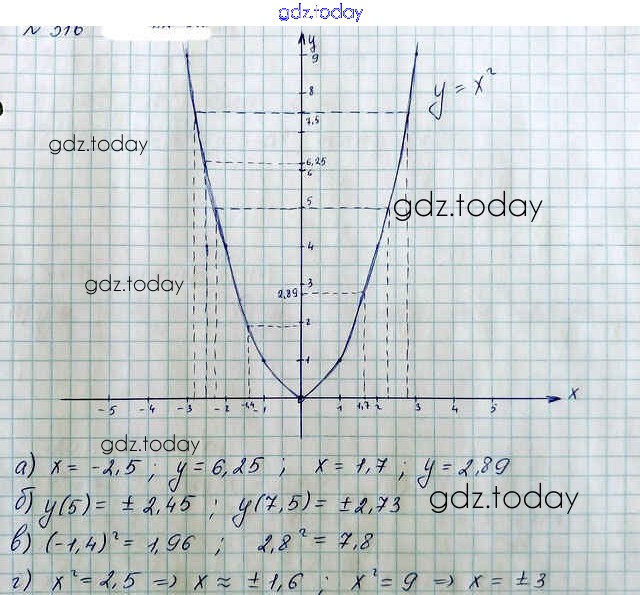 gdz.today
№ 316
y
9
y = x²
8
7,5
gdz.today
6,25
6
5
gdz.today
4
gdz.today
3
2,89
2
1
-5 -4 -3 -2 -1,4 -1 1 1,7 2 3 4 5 x
gdz.today
а) x = -2,5 ; y = 6,25 ; x = 1,7 ; y = 2,89
б) y(5) = ± 2,45 ; y(7,5) = ± 2,73
gdz.today
в) (-1,4)² = 1,96 ; 2,8² = 7,8
г) x² = 2,5 => x ≈ ± 1,6 ; x² = 9 => x = ± 3